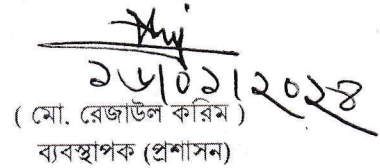 ১৬/০১/২০২৪
( মো. রেজাউল করিম )
ব্যবস্থাপক (প্রশাসন)